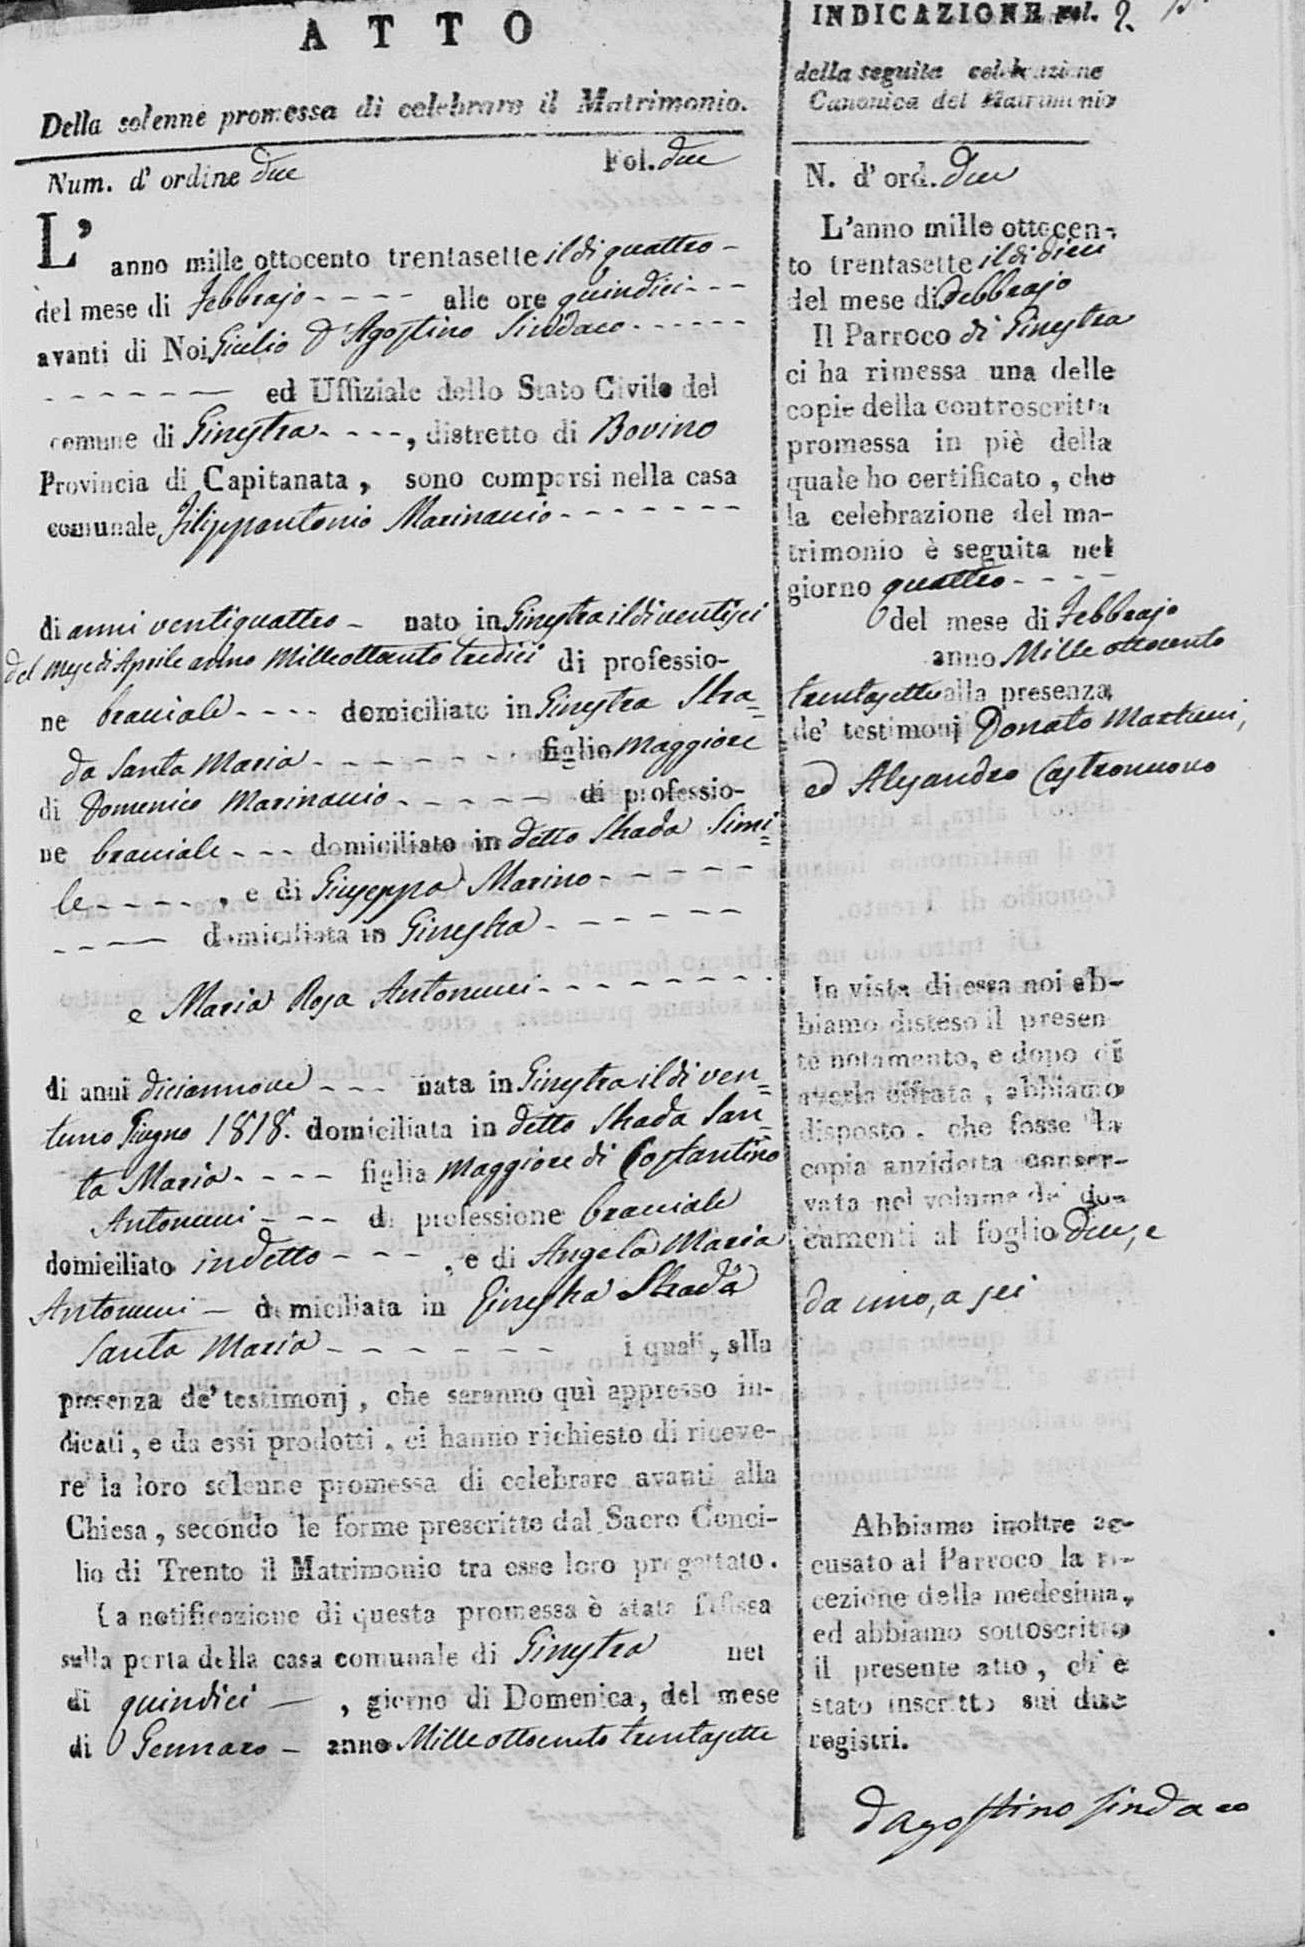 ATTO
Della solenne promessa di celebrare il Matrimonio.
Num. d' ordine due Fol. due
L'
anno mille ottocento trentasette il di quattro -
del mese di Febbrajo - - - - alle ore quindici - - -
avanti di Noi Giulio D'Agostino Sindaco - - - - - -
- - - - - - - ed Uffiziale dello Stato Civile del
comune di Ginestra - - - -, distretto di Bovino
Provincia di Capitanata, sono comparsi nella casa
comunale Filippantonio Marinaccio - - - - - - -
di anni ventiquattro - nato in Ginestra il di ventisei
del mese di Aprile anno Mille ottocento tredici di professio-
ne bracciale - - - - domiciliato in Ginestra Stra=
da Santa Maria - - - - - - - figlio maggiore
di Domenico Marinaccio - - - - - di professio-
ne bracciale - - - domiciliato in detto Strada Simi=
le - - - - -, e di Giuseppa Marino - - - - -
- - - - domiciliata in Ginestra - - - - - -
e Maria Rosa Antonucci - - - - - - - -
di anni diciannove - - - nata in Ginestra il di ven=
tuno Giugno 1818. domiciliata in detto Strada San=
ta Maria - - - - figlia maggiore di Costantino
Antonucci - - - di professione bracciale
domiciliato in detto - - - -, e di Angela Maria
Antonucci - domiciliata in Ginestra Strada
Santa Maria - - - - - - - i quali, alla
presenza de' testimonj, che saranno quì appresso in-
dicati, e da essi prodotti, ci hanno richiesto di riceve-
re la loro solenne promessa di celebrare avanti alla
Chiesa, secondo le forme prescritte dal Sacro Conci-
lio di Trento il Matrimonio tra esse loro progettato.
La notificazione di questa promessa è stata affissa
sulla porta della casa comunale di Ginestra nel
di quindici -, giorno di Domenica, del mese
di Gennaro - anno Mille ottocento trentasette
INDICAZIONE Fol. 2
della seguita celebrazione
Canonica del Matrimonio
N. d' ord. due
L'anno mille ottocen-
to trentasette il di dieci
del mese di Febbrajo
Il Parroco di Ginestra
ci ha rimessa una delle
copie della controscritta
promessa in piè della
quale ho certificato, che
la celebrazione del ma-
trimonio è seguita nel
giorno quattro - - - -
del mese di Febbrajo
anno Mille ottocento
trentasette alla presenza
de' testimonj Donato Martucci,
ed Alesandro Castronuovo
In vista di essa noi ab-
biamo disteso il presen
te notamento, e dopo di
averla cifrata, abbiamo
disposto, che fosse la
copia anzidetta conser-
vata nel volume de' do-
cumenti al foglio due, e
da uno, a sei
Abbiamo inoltre ac-
cusato al Parroco la ri-
cezione della medesima,
ed abbiamo sottoscritto
il presente atto, ch' è
stato inscritto sui due
registri.
D'Agostino Sindaco